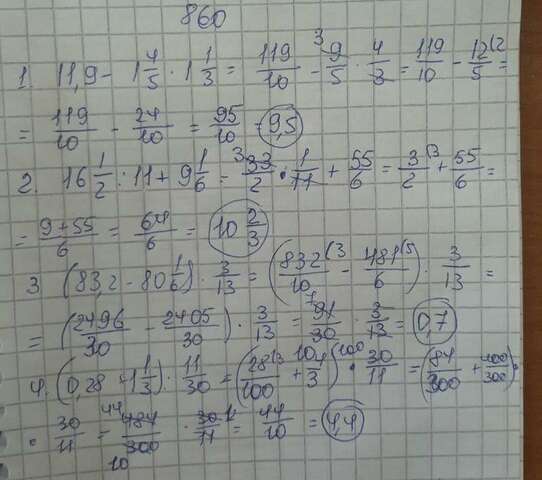 860
1. 11,9 - 1 4/5 · 1 1/3 = 119/10 - 3 9/5 · 4/3 = 119/10 - 12/5 (2 =
= 119/10 - 24/10 = 95/10 = 9,5
2. 16 1/2 : 11 + 9 1/6 = 3 33/2 · 1/11 + 55/6 = 3/2 (3 + 55/6 =
= 9+55/6 = 64/6 = 10 2/3
3 (83,2 - 80 1/6) · 3/13 = (832/10 (3 - 481/6 (5) · 3/13 =
= (2496/30 - 2405/30) · 3/13 = 7 91/30 · 3/13 = 0,7
4. (0,28 + 1 1/3) · 11/30 = (28/100 (3 + 4/3 (100) · 30/11 = (84/300 + 400/300) ·
· 30/11 = 44 484/300 10 · 30/11 = 44/10 = 4,4